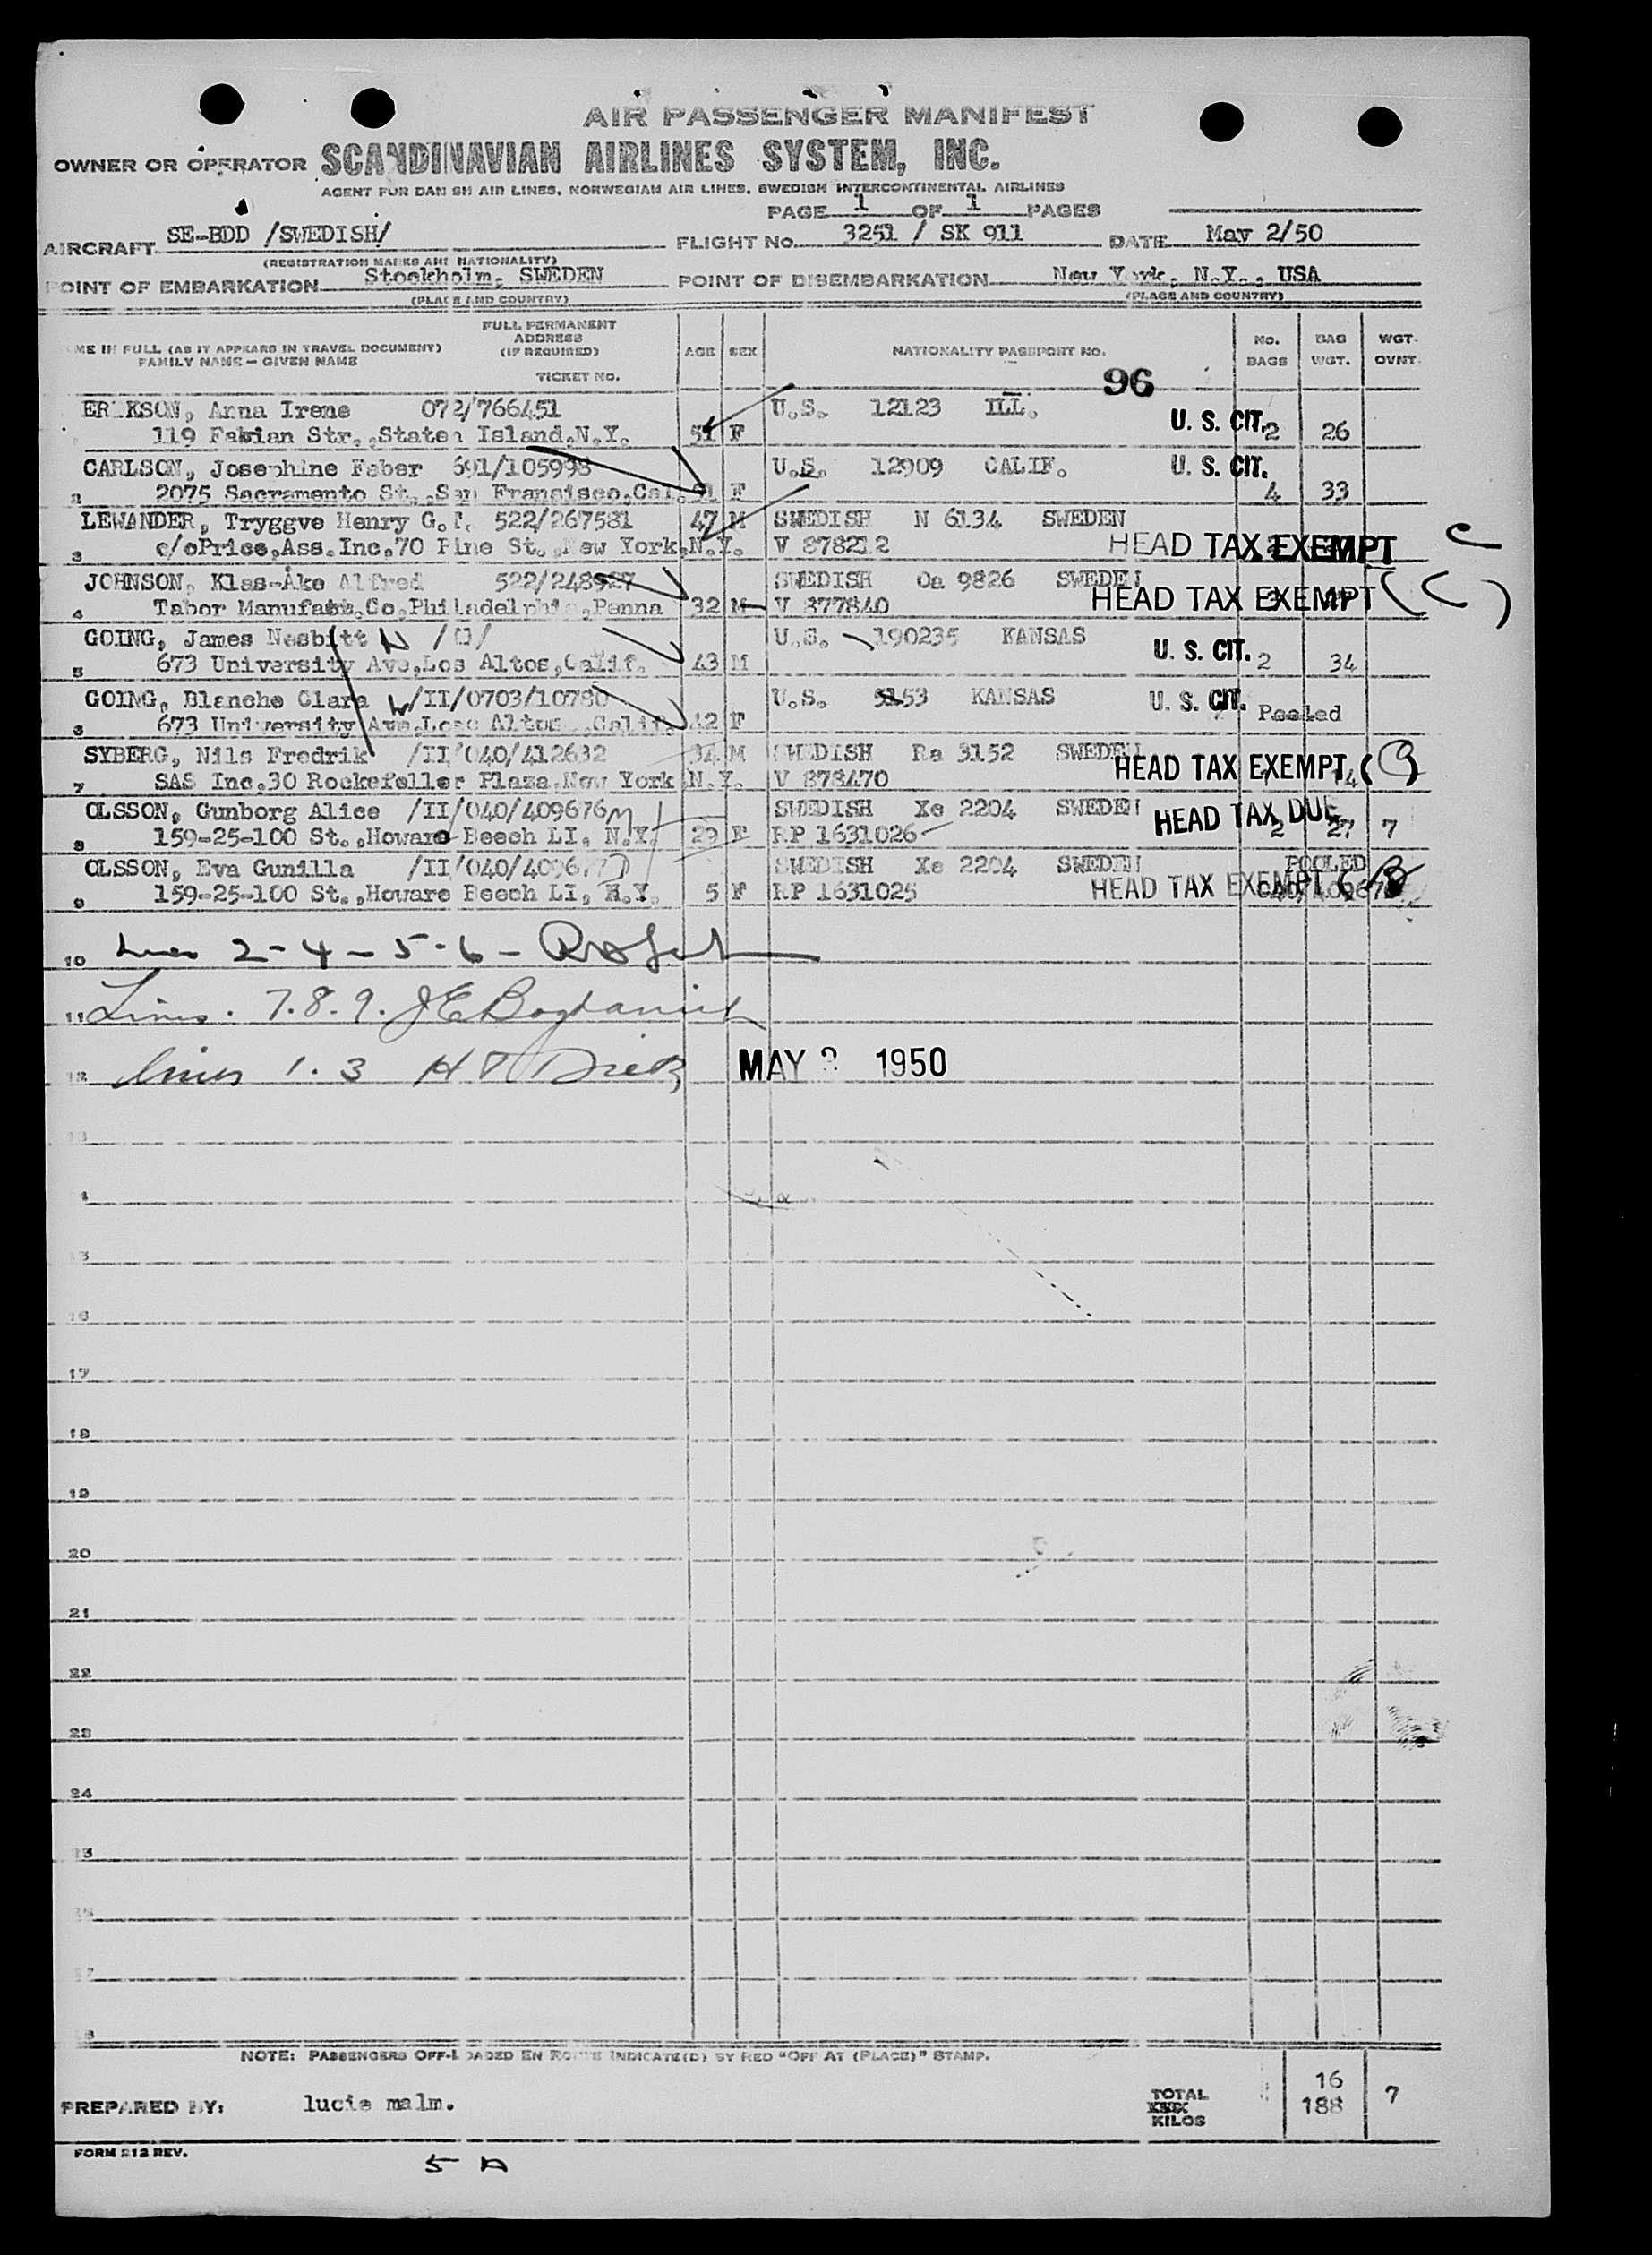 AIR PASSENGER MANIFEST
OWNER OR OPERATOR SCANDINAVIAN AIRLINES SYSTEM, INC.
AGENT FOR DANISH AIR LINES, NORWEGIAN AIR LINES, SWEDISH INTERCONTINENTAL AIRLINES
PAGE 1 OF 1 PAGES
AIRCRAFT SE-BDD /SWEDISH/ FLIGHT No. 3251 / SK 911 DATE May 2/50
(REGISTRATION MARKS AND NATIONALITY)
POINT OF EMBARKATION Stockholm, SWEDEN POINT OF DISEMBARKATION New York, N.Y., USA
(PLACE AND COUNTRY) (PLACE AND COUNTRY)
ME IN FULL (AS IT APPEARS IN TRAVEL DOCUMENT) FAMILY NAME – GIVEN NAME FULL PERMANENT ADDRESS (IF REQUIRED) TICKET No. AGE SEX NATIONALITY PASSPORT No. No. BAGS BAG WGT. WGT. OVNT.
96
ERIKSON, Anna Irene 072/766451 U.S. 12123 ILL. U. S. CIT.
119 Fabian Str.,Staten Island,N.Y. 51 F 2 26
CARLSON, Josephine Faber 691/105998 U.S. 12909 CALIF. U. S. CIT.
2 2075 Sacramento St.,San Francisco,Cal. F 4 33
LEWANDER, Tryggve Henry G.T. 522/267581 47 M SWEDISH N 6134 SWEDEN
3 c/oPrice,Ass.Inc,70 Pine St.,New York,N.Y. V 878212 HEAD TAX EXEMPT C
JOHNSON, Klas-Åke Alfred 522/248927 SWEDISH Oa 9826 SWEDEN
4 Tabor Manufact.Co,Philadelphia,Penna 32 M V 877840 HEAD TAX EXEMPT (C)
GOING, James Nesbitt /II/ U.S. 190235 KANSAS U. S. CIT.
5 673 University Ave,Los Altos,Calif. 43 M 2 34
GOING, Blanche Clara /II/0703/10780 U.S. 5153 KANSAS U. S. CIT.
6 673 University Ave,Los Altos,Calif. 42 F Pooled
SYBERG, Nils Fredrik /II/040/412632 34 M SWEDISH Ra 3152 SWEDEN
7 SAS Inc.30 Rockefeller Plaza,New York N.Y. V 878470 HEAD TAX EXEMPT 14
OLSSON, Gunborg Alice /II/040/409676 SWEDISH Xe 2204 SWEDEN HEAD TAX DUE
8 159-25-100 St.,Howard Beech LI, N.Y. 29 F RP 1631026 2 27 7
OLSSON, Eva Gunilla /II/040/409677 SWEDISH Xe 2204 SWEDEN POOLED
9 159-25-100 St.,Howare Beech LI, N.Y. 5 F RP 1631025 HEAD TAX EXEMPT 040/409676
10 2-4-5-6-
11 Lines. 7.8.9.
12 lines 1.3 MAY 2 1950
13
16
17
18
19
20
21
22
23
24
NOTE: PASSENGERS OFF-LOADED EN ROUTE INDICATE(D) BY RED "OFF AT (PLACE)" STAMP.
PREPARED BY: lucie malm. TOTAL KILOS 16 188 7
FORM 212 REV.
5